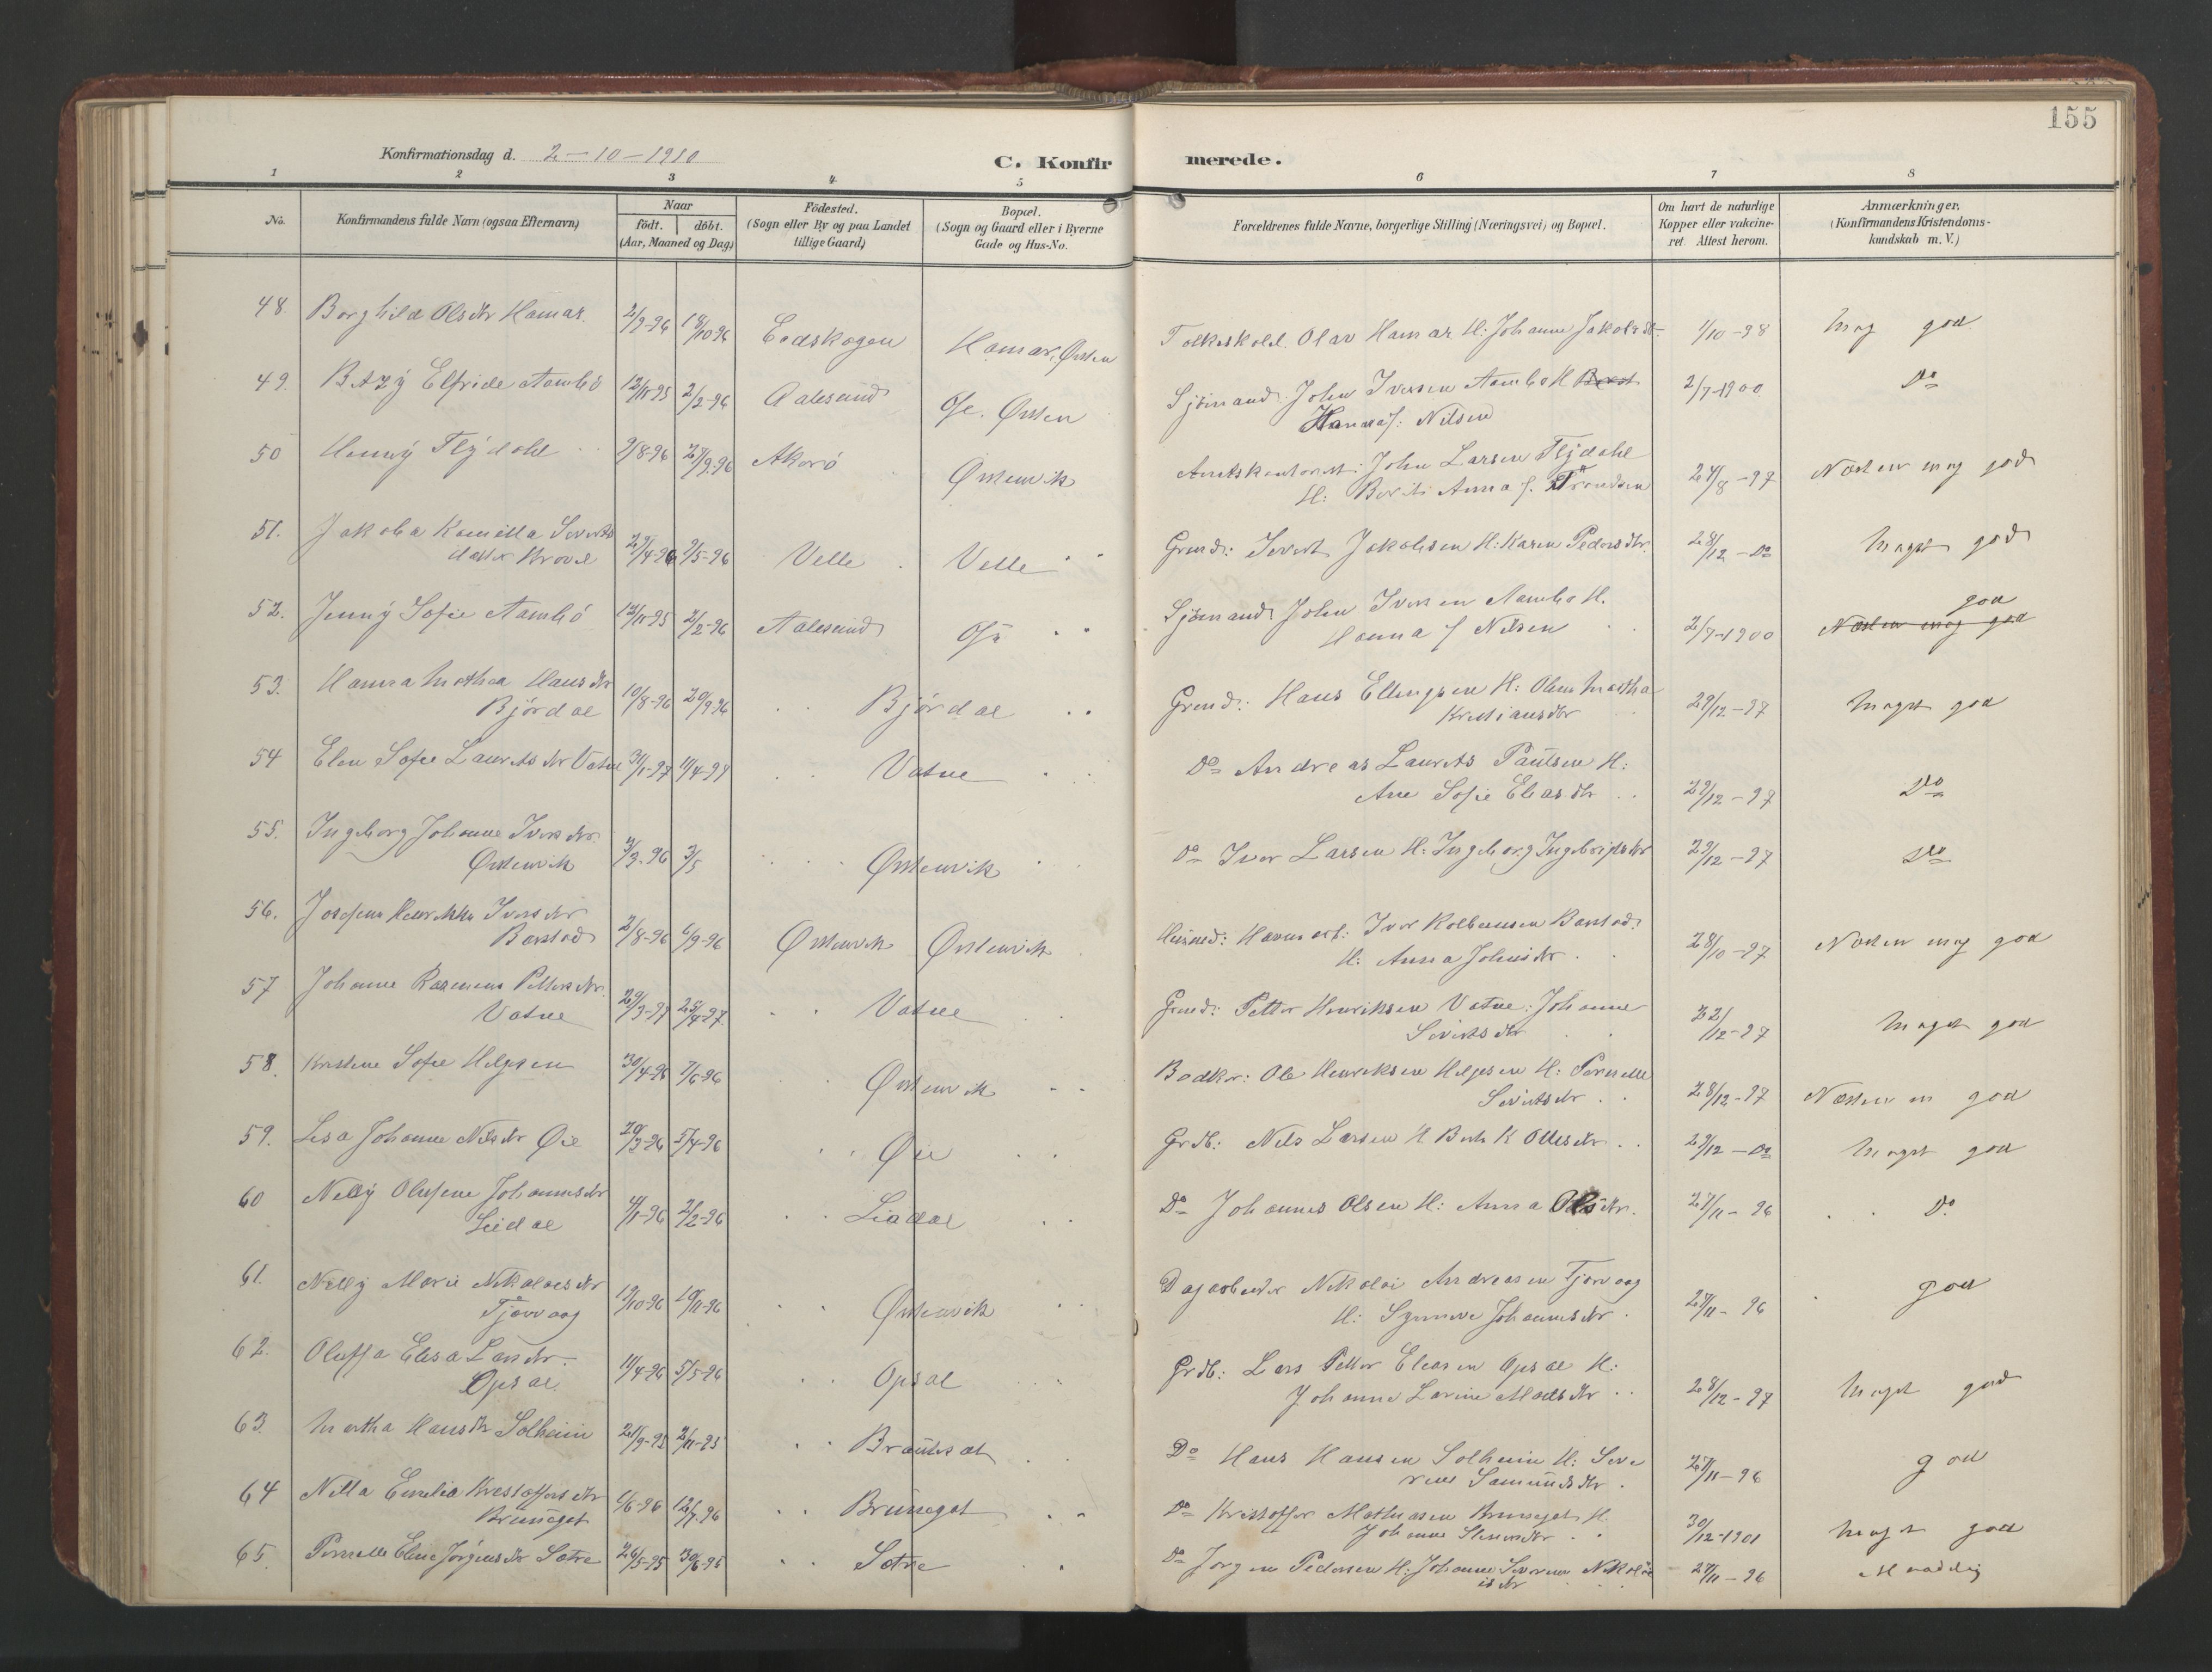 155
Konfirmationsdag d. 2-10-1910
C. Konfirmerede.
1 2 3 4 5 6 7 8
No.
Konfirmandens fulde Navn (ogsaa Efternavn)
Naar
födt. döbt.
(Aar, Maaned og Dag)
Födested.
(Sogn eller By og paa Landet
tillige Gaard)
Bopæl.
(Sogn og Gaard eller i Byerne
Gade og Hus-No.
Forældrenes fulde Navne, borgerlige Stilling (Næringsvei) og Bopæl.
Om havt de naturlige
Kopper eller vakcine-
ret Attest herom.
Anmærkninger.
(Konfirmandens Kristendoms-
kundskab m. V.)
48 Borghild Olsdtr Hamar 2/9-96 18/10 96 Eidskogen Hamar, Ørsten Olav Hamar H: Johanne Jakobsdtr 1/10-98 mag god
49. Elfride Aambö 12/11-95 2/2-96 Aalesund Ose. Ørsten Sjömand: John Iversen Aambö H
Hanna f: Nilsen 2/7-1900 Do
50 Henny Flydahl 9/8-96 27/9.96 Akerö Ørstenvik John Larsen Flydahl
H: Berit Anna f. Trondsen 24/8-97 Næsten mag god
51. Jakoba Kamilla Siverts
datter Krovel 29/4-96 9/5-96 Velle Velle Grmd: Sivert Jakobsen H: Karen Pedersdtr. 28/12-Do Meget god
52. Jenny Sofie Aambö 12/11-95 2/2-96 Aalesund Ose Sjömand John Iversen Aambö H.
Hanna f Nilsen 2/7-1900 god
Næsten mag god
53. Hanna Mathea Hansdtr
Björdal 10/8-96 20/9 96 Björdal Grmd: Hans Ellingsen H: Oline Martha
Kristiansdtr 29/12-97 Meget god
54 Elen Sofie Lauritsdtr Vatne 31/1-97 11/4-97 Vatne Do Andreas Laurits Paulsen H:
Ane Sofie Eliasdtr 29/12-97 Do
55. Ingeborg Johanne Iversdtr.
Ørstenvik 3/3-96 3/5 Ørstenvik Do Iver Larsen H: Ingeborg Ingebrigtsdtr 29/12-97 Do
56. Josefine Henrikka Iversdtr
Barstad 2/8-96 6/9-96 Ørstenvik Ørstenvik Husmd: Iver Kolbensen Barstad
H: Anna Johnsdtr 28/10-97 Næsten mag god
57 Johanne Rasmine Pettersdtr.
Vatne 29/3-97 25/4-97. Vatne Grmd: Petter Henriksen Vatne: Johanne
Sivertsdtr 22/12-97 Meget god
58. Kristine Sofie Helgesen 30/4-96 7/6-96 Ørstenvik Bødker: Ole Henriksen Helgesen H: Pernelle
Sivertsdtr 28/12-97 Næsten m god
59. Lisa Johanne Nilsdtr Øie 20/3-96 5/4-96 Øie Grdb: Nils Larsen H Berte K Ollesdtr 29/12-Do Meget god
60 Nelly Olufine Johannesdtr
Liadal 4/1-96 2/2-96 Liadal Do Johannes Olsen H: Anna Olsdtr. 27/11-96 Do
61. Nelly Marie Nikolaisdtr
Tjørvaag 19/10-96 10/11-96 Ørstenvik Dagarbeider Nikolai Andreasen Tjørvaag
H: Synneve Johannesdtr 27/11-96 god
62. Oluffa Elisa Larsdtr.
Opsal 11/4-96 5/5-96 Opsal Grdb: Lars Petter Eliasen Opsal H:
Johanne Lovine Madsdtr 28/12-97 Meget god
63. Martha Hansdtr Solheim 21/9-95 2/11-95 Do Hans Hansen Solheim H: Seve
rine Samundsdtr 27/11-96 god
64 Nilla Emilia Kristoffersdtr
Brunegot 6/6-96 12/7.96 Brunegot Do Kristoffer Mathiasen Brunegot H.
Johanne 30/12-1901 Meget god
65. Pernelle Eline Jörgensdtr Sætre 26/5-95 30/6-95 Sætre Do Jörgen Pedersen H: Johanne Severine Nikolai
sdtr 27/11-96 Maadelig